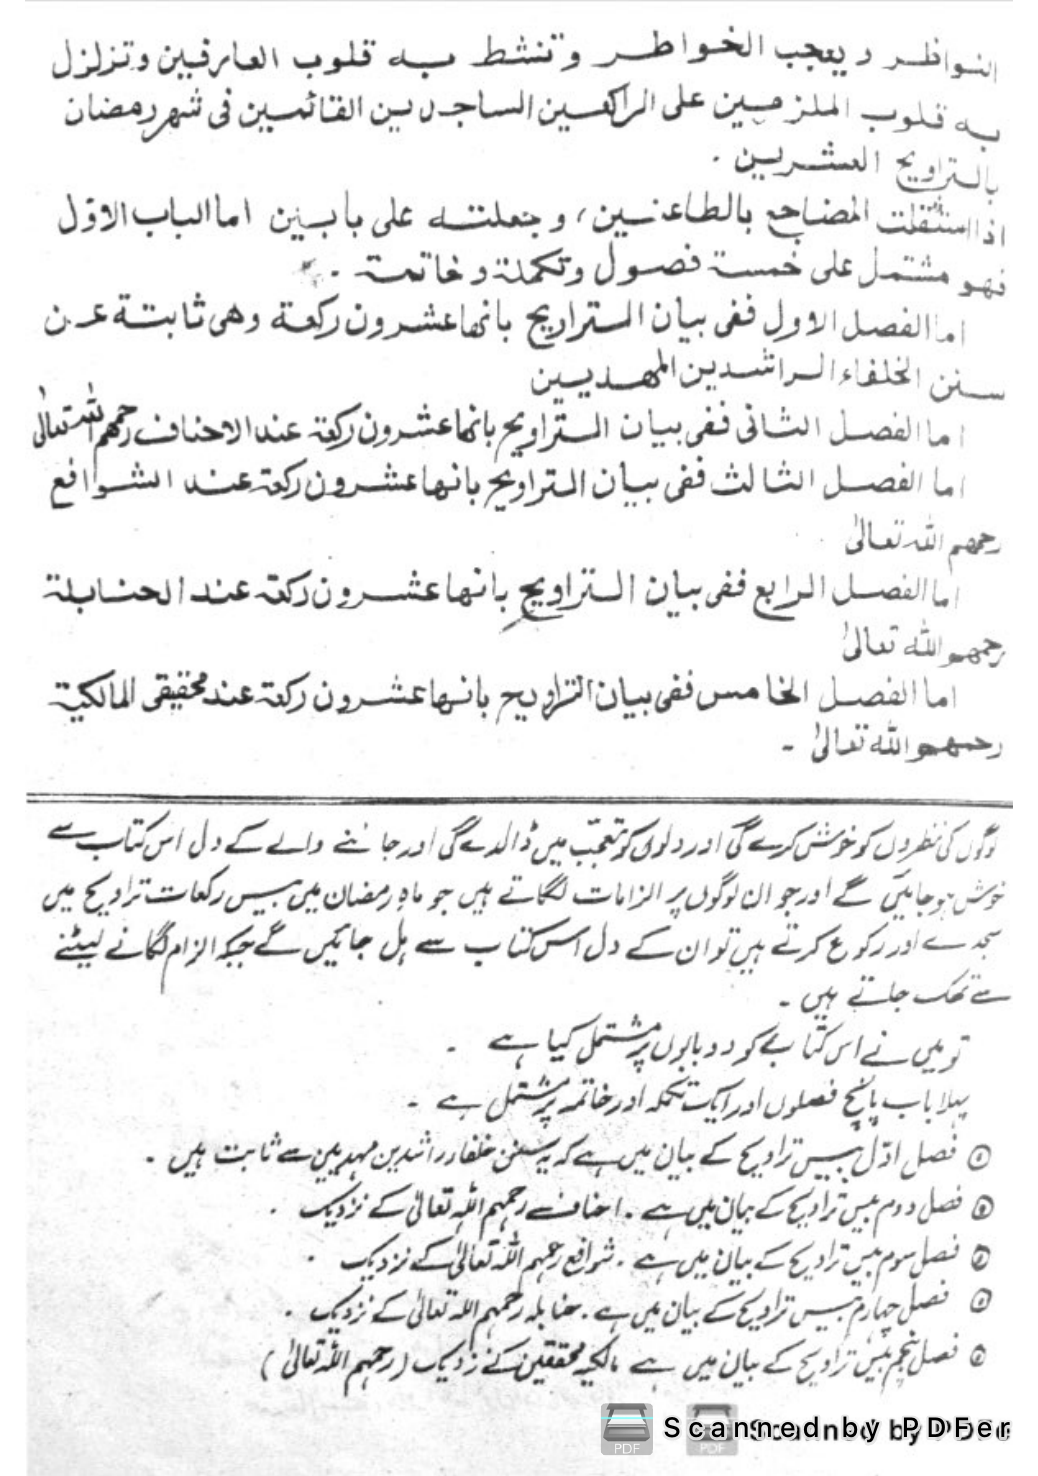 النواظر ويعجب الخواطر وتنشط به قلوب العارفين وتزلزل
به قلوب الملزمين على الراكعين الساجدين القائمين فى شهر رمضان
بالتراويح العشرين .
اذا استثقلت المضاجع بالطاعنين، وجعلته على بابين اما الباب الاوّل
فهو مشتمل على خمسة فصول وتكملة وخاتمة .
اما الفصل الاول ففى بيان التراريح بانها عشرون ركعة وهى ثابتة عن
سنن الخلفاء الراشدين المهديين
اما الفصل الثانى ففى بيان التراويح بانها عشرون ركعة عند الاحناف رحمهم الله تعالىٰ
اما الفصل الثالث ففى بيان التراويح بانها عشرون ركعة عند الشوافع
رحمهم الله تعالىٰ
اما الفصل الرابع ففى بيان التراويح بانها عشرون ركعة عند الحنابلة
رحمهم الله تعالىٰ
اما الفصل الخامس ففى بيان التراويح بانها عشرون ركعة عند محقيقى المالكية
رحمهم الله تعالىٰ -
لوگوں کی نظروں کو خوش کرے گی اور دلوں کو تعجّب میں ڈالدے گی اور جاننے والے کے دل اس کتاب سے
خوش ہوجائیں گے اور جو ان لوگوں پر الزامات لگاتے ہیں جو ماہِ رمضان میں بیس رکعات تراویح میں
سجدے اور رکوع کرتے ہیں تو ان کے دل اس کتاب سے ہل جائیں گے جبکہ الزام لگانے لیٹنے
سے تھک جاتے ہیں ۔
تو میں نے اس کتاب کو دو بابوں پر مشتمل کیا ہے ۔
پہلا باب پانچ فصلوں اور ایک تکملہ اور خاتمہ پر مشتمل ہے ۔
① فصل اوّل بیس تراویح کے بیان میں ہے کہ یہ سنن خلفاء راشدین مہدیین سے ثابت ہیں ۔
فصل دوم بیس تراویح کے بیان میں ہے ۔ احناف رحمہم اللہ تعالیٰ کے نزدیک ۔
فصل سوم بیس تراویح کے بیان میں ہے ۔ شوافع رحمہم اللہ تعالیٰ کے نزدیک ۔
فصل چہارم بیس تراویح کے بیان میں ہے ۔ حنابلہ رحمہم اللہ تعالیٰ کے نزدیک ۔
فصل پنجم بیس تراویح کے بیان میں ہے مالکیہ محققین کے نزدیک (رحمہم اللہ تعالیٰ)
Scanned by PDFer